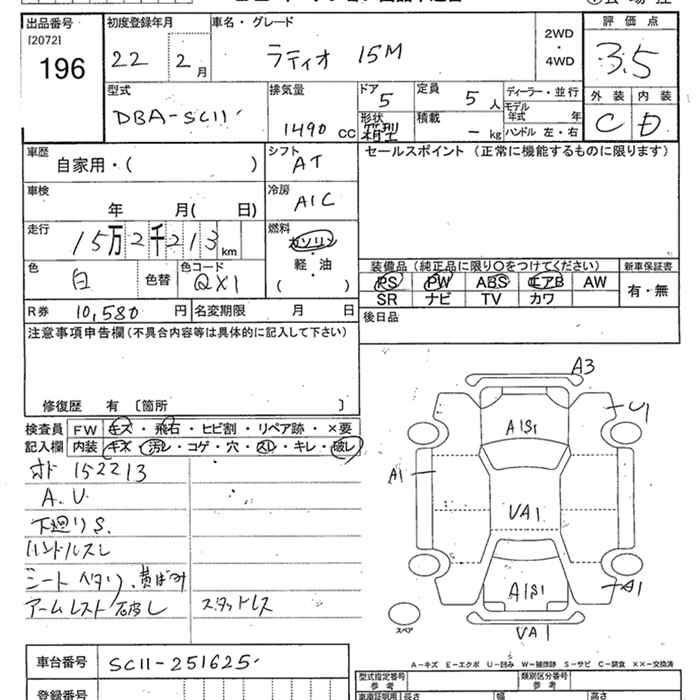 出品番号 初度登録年月 車名・グレード 評価点
[2072]
196
22 2月
ラティオ 15M
2WD
・
4WD
3.5
外装 内装
C D
型式
DBA-SC11
排気量
1490 CC
ドア
5
定員
5人
形状
箱型
積載
- kg
ディーラー・並行
モデル年式 年
ハンドル 左・右
車歴
自家用・( )
シフト
AT
セールスポイント (正常に機能するものに限ります)
車検
年 月( 日)
冷房
A/C
走行
15万2千213km
燃料
ガソリン
・
軽・油
( )
色
白
色替
色コード
QX1
装備品 (純正品に限り○をつけてください)
PS PW ABS エアB AW
SR ナビ TV カワ
新車保証書
有・無
R券 10,580 円
名変期限 月 日
後日品
注意事項申告欄(不具合内容等は具体的に記入して下さい)
修復歴 有 〔箇所 〕
検査員記入欄
FW キズ・飛石・ヒビ割・リペア跡・×要
内装 キズ・汚レ・コゲ・穴・スレ・キレ・破レ
オド 152213
A.U.
下廻りS.
ハンドルスレ
シート ヘタリ、黄ばみ
アームレスト 破レ
スタットレス
A3
U1
A1S1
A1
VA1
A1S1
A1
VA1
スペア
A-キズ E-エクボ U-凹み W-補修跡 S-サビ C-腐食 XX-交換済
車台番号 SC11-251625
登録番号
型式指定番号 参考
類別区分番号 参考
車庫証明用 長さ 幅 高さ